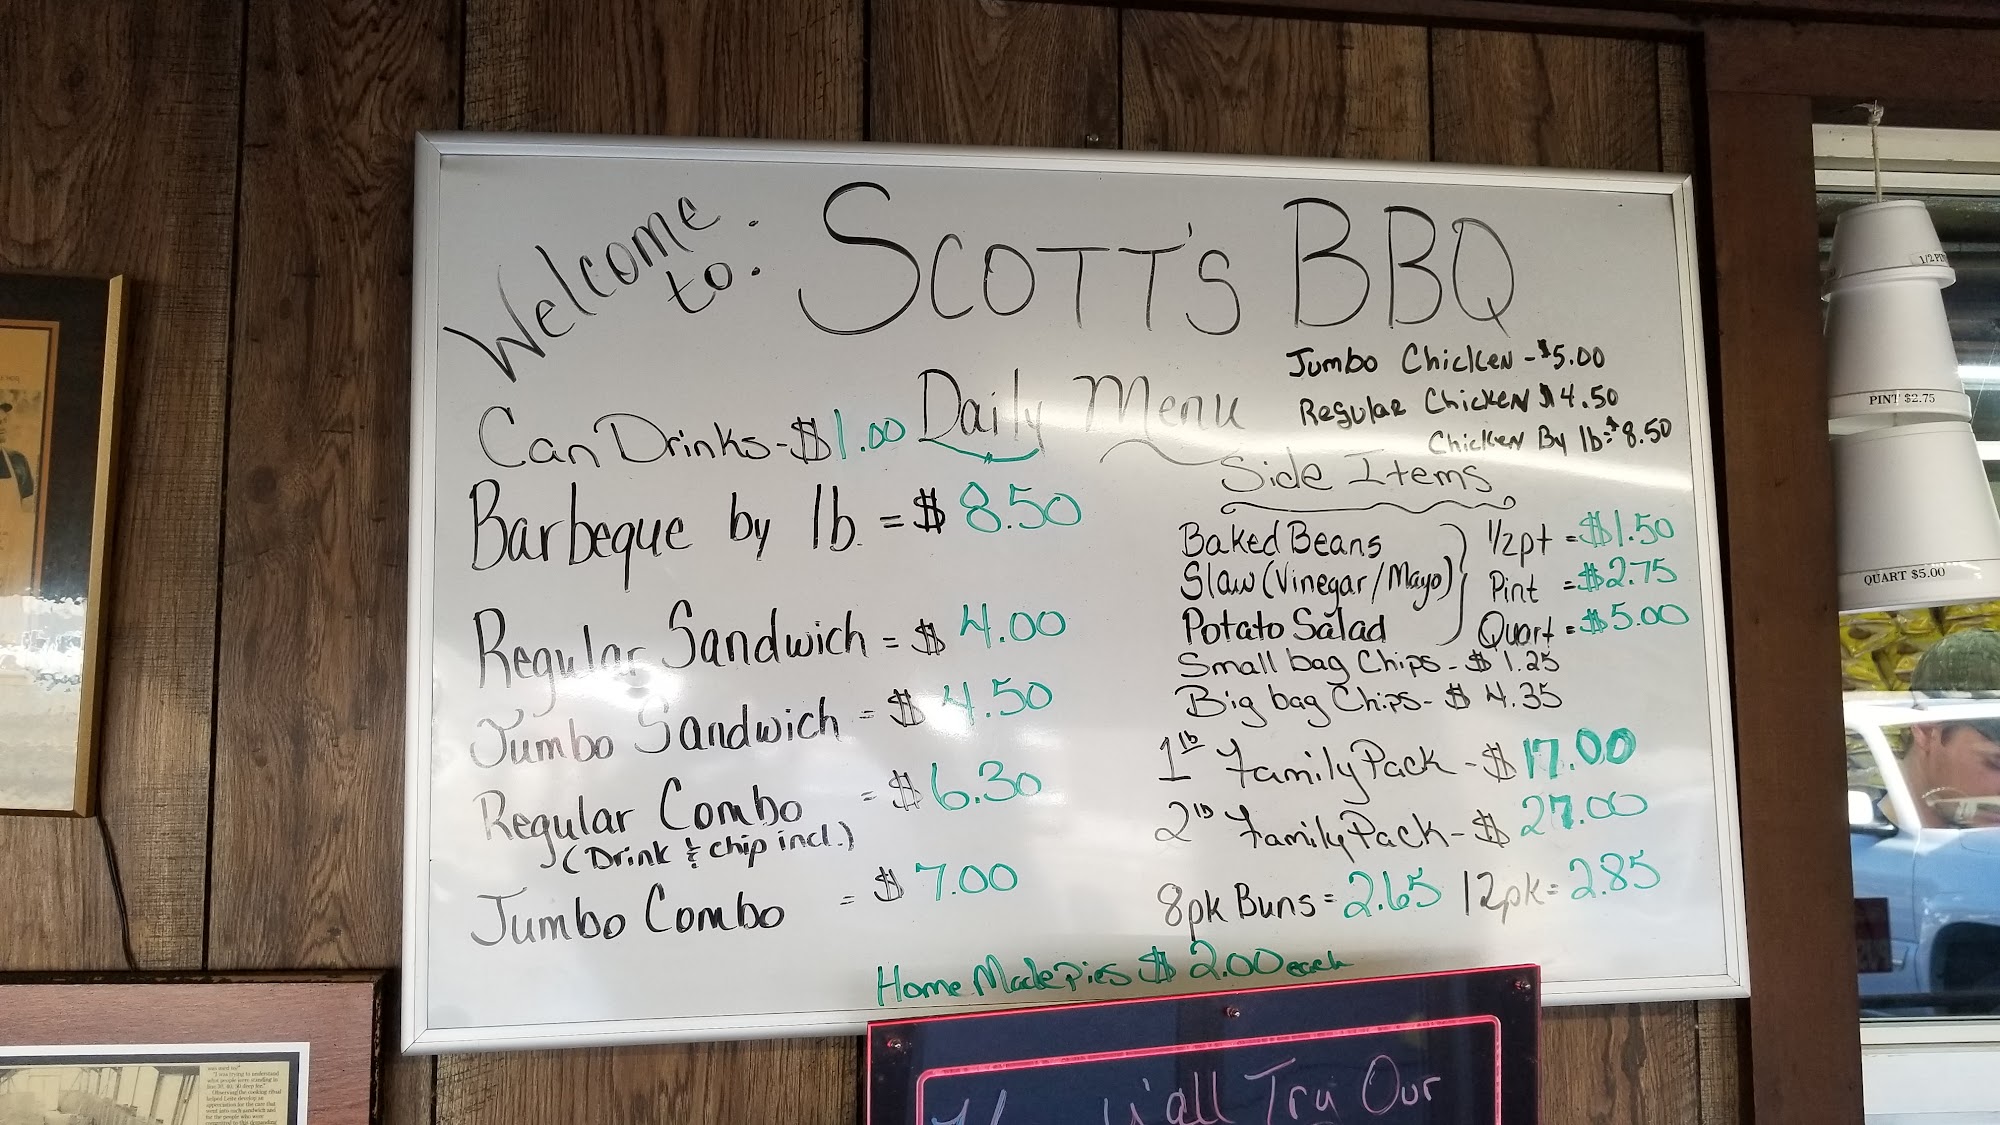 Welcome to: SCOTT'S BBQ
Daily Menu
Can Drinks - $1.00
Barbeque by lb. = $8.50
Regular Sandwich = $4.00
Jumbo Sandwich = $4.50
Regular Combo = $6.30
(Drink & chip incl.)
Jumbo Combo = $7.00
Jumbo Chicken - $5.00
Regular Chicken $4.50
Chicken By lb - $8.50
Side Items
Baked Beans
Slaw (Vinegar/Mayo)
Potato Salad
1/2 pt = $1.50
Pint = $2.75
Quart = $5.00
Small bag Chips - $1.25
Big bag Chips - $4.35
1 lb Family Pack - $17.00
2 lb Family Pack - $27.00
8pk Buns = 2.65 12pk = 2.85
Home Made Pies $2.00 each
y'all Try Our
PINT $2.75
QUART $5.00
"I was trying to understand
what people were standing in
Observing the cooking ritual